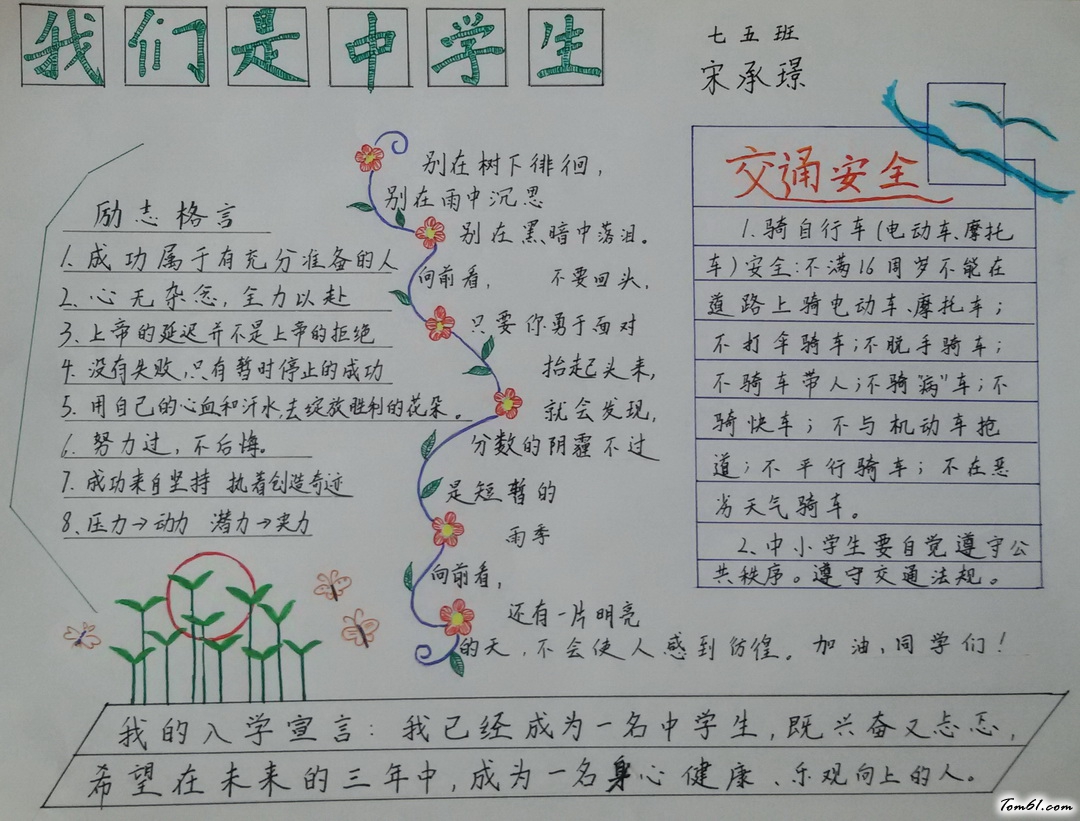 我们是中学生
七五班
宋承璟
励志格言
1.成功属于有充分准备的人
2.心无杂念,全力以赴
3.上帝的延迟并不是上帝的拒绝
4.没有失败,只有暂时停止的成功
5.用自己的心血和汗水,去绽放胜利的花朵。
6.努力过,不后悔。
7.成功来自坚持 执着创造奇迹
8.压力→动力 潜力→实力
别在树下徘徊,
别在雨中沉思
别在黑暗中落泪。
向前看, 不要回头,
只要你勇于面对
抬起头来,
就会发现,
分数的阴霾不过
是短暂的
雨季
向前看,
还有一片明亮
的天,不会使人感到彷徨。加油,同学们!
交通安全
1.骑自行车(电动车、摩托
车)安全:不满16周岁不能在
道路上骑电动车、摩托车;
不打伞骑车;不脱手骑车;
不骑车带人;不骑"病"车;不
骑快车;不与机动车抢
道;不平行骑车;不在恶
劣天气骑车。
2、中小学生要自觉遵守公
共秩序。遵守交通法规。
我的入学宣言:我已经成为一名中学生,既兴奋又忐忑,
希望在未来的三年中,成为一名身心健康、乐观向上的人。
Tom61.com